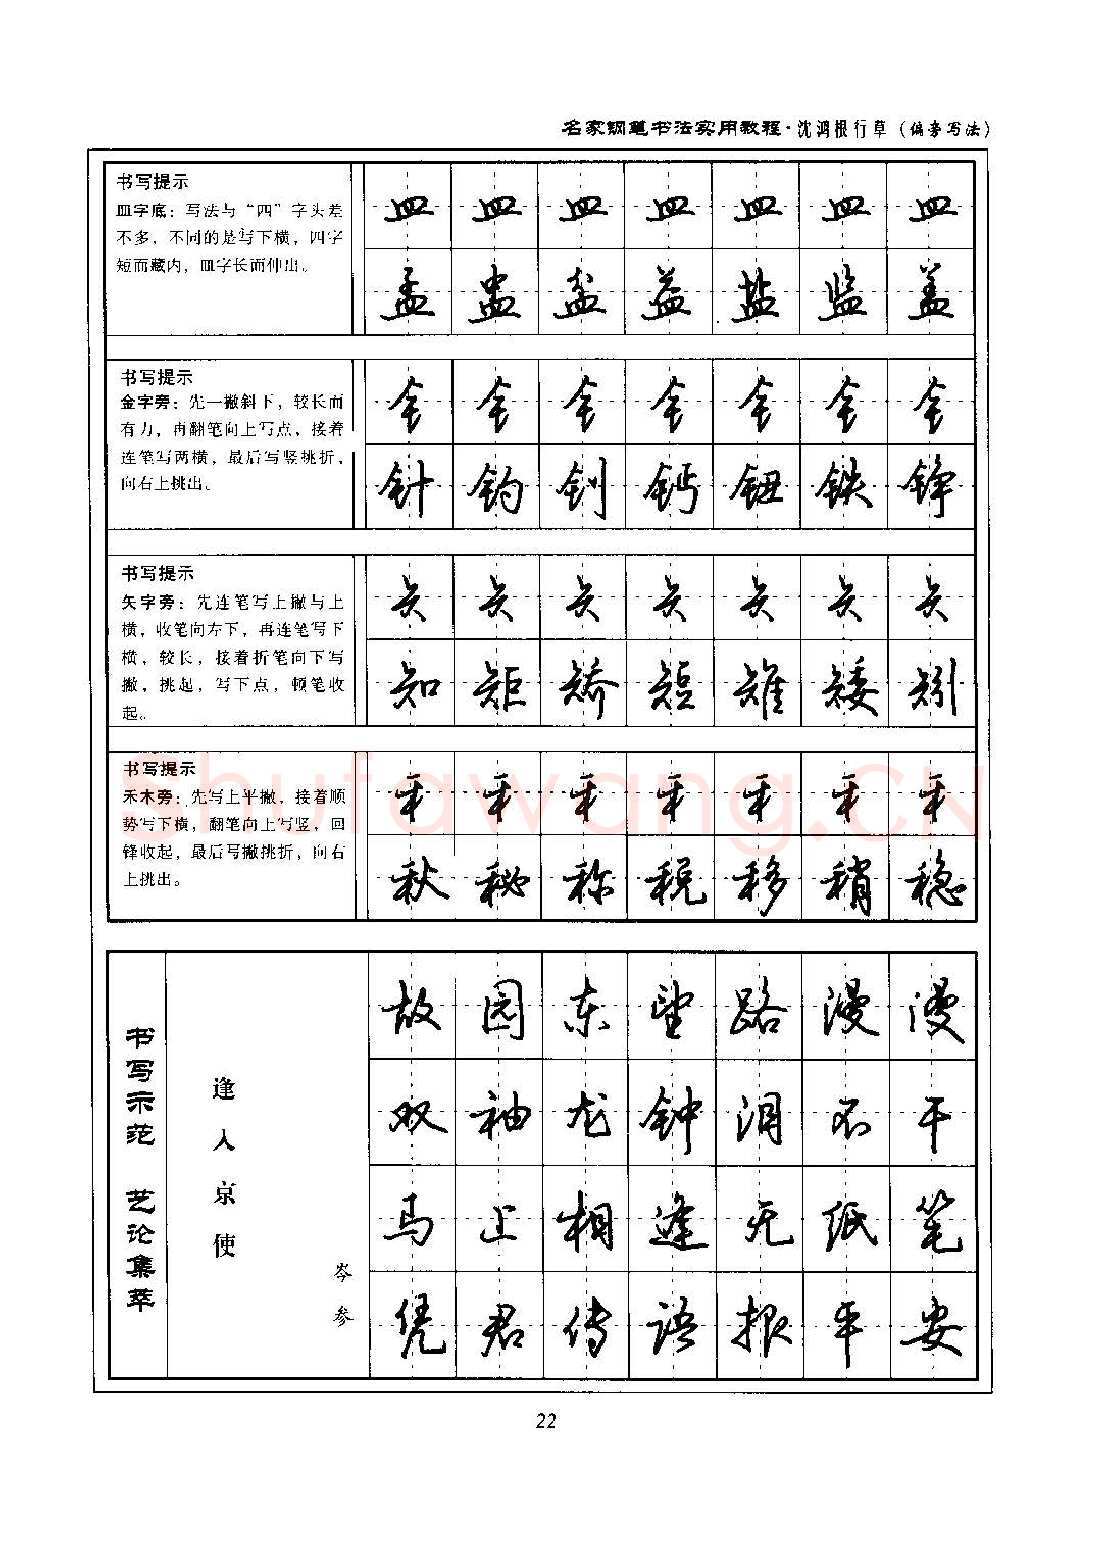 名家钢笔书法实用教程·沈鸿根行草(偏旁写法)
书写提示
皿字底：写法与“四”字头差
不多，不同的是写下横，四字
短而藏内，皿字长而伸出。
皿 皿 皿 皿 皿 皿 皿
孟 盅 盆 益 盐 监 盖
书写提示
金字旁：先一撇斜下，较长而
有力，再翻笔向上写点，接着
连笔写两横，最后写竖挑折，
向右上挑出。
钅 钅 钅 钅 钅 钅 钅
针 钓 钊 钙 钮 铁 铮
书写提示
矢字旁：先连笔写上撇与上
横，收笔向左下，再连笔写下
横，较长，接着折笔向下写
撇，挑起，写下点，顿笔收
起。
矢 矢 矢 矢 矢 矢 矢
知 矩 矫 短 雉 矮 矧
书写提示
禾木旁：先写上平撇，接着顺
势写下横，翻笔向上写竖，回
锋收起，最后写撇挑折，向右
上挑出。
禾 禾 禾 禾 禾 禾 禾
秋 秘 称 税 移 稍 稳
Shufawang.CN
书写示范 艺论集萃
逢人京使
岑参
故园东望路漫漫
双袖龙钟泪不干
马上相逢无纸笔
凭君传语报平安
22